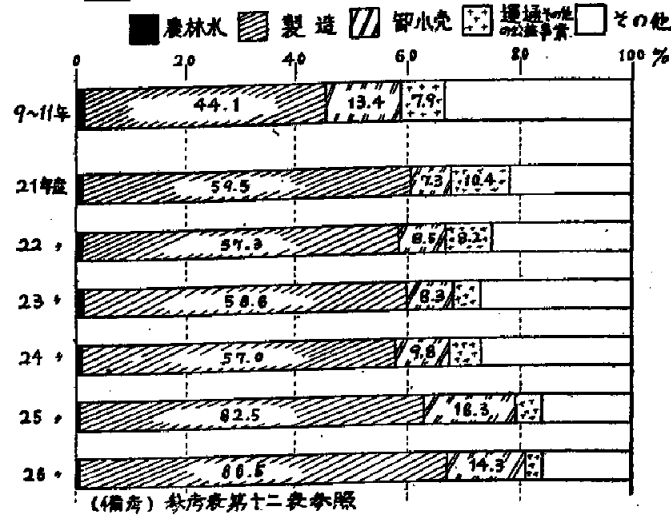 農林水 製造 卸小売 運通その他の公益事業 その他
0 20 40 60 80 100 %
9~11年 44.1 13.4 7.9
21年度 59.5 7.3 10.4
22 〃 57.3 8.5 8.2
23 〃 58.6 8.3
24 〃 57.0 9.8
25 〃 62.5 16.3
26 〃 66.5 14.3
(備考) 参考表第十二表参照